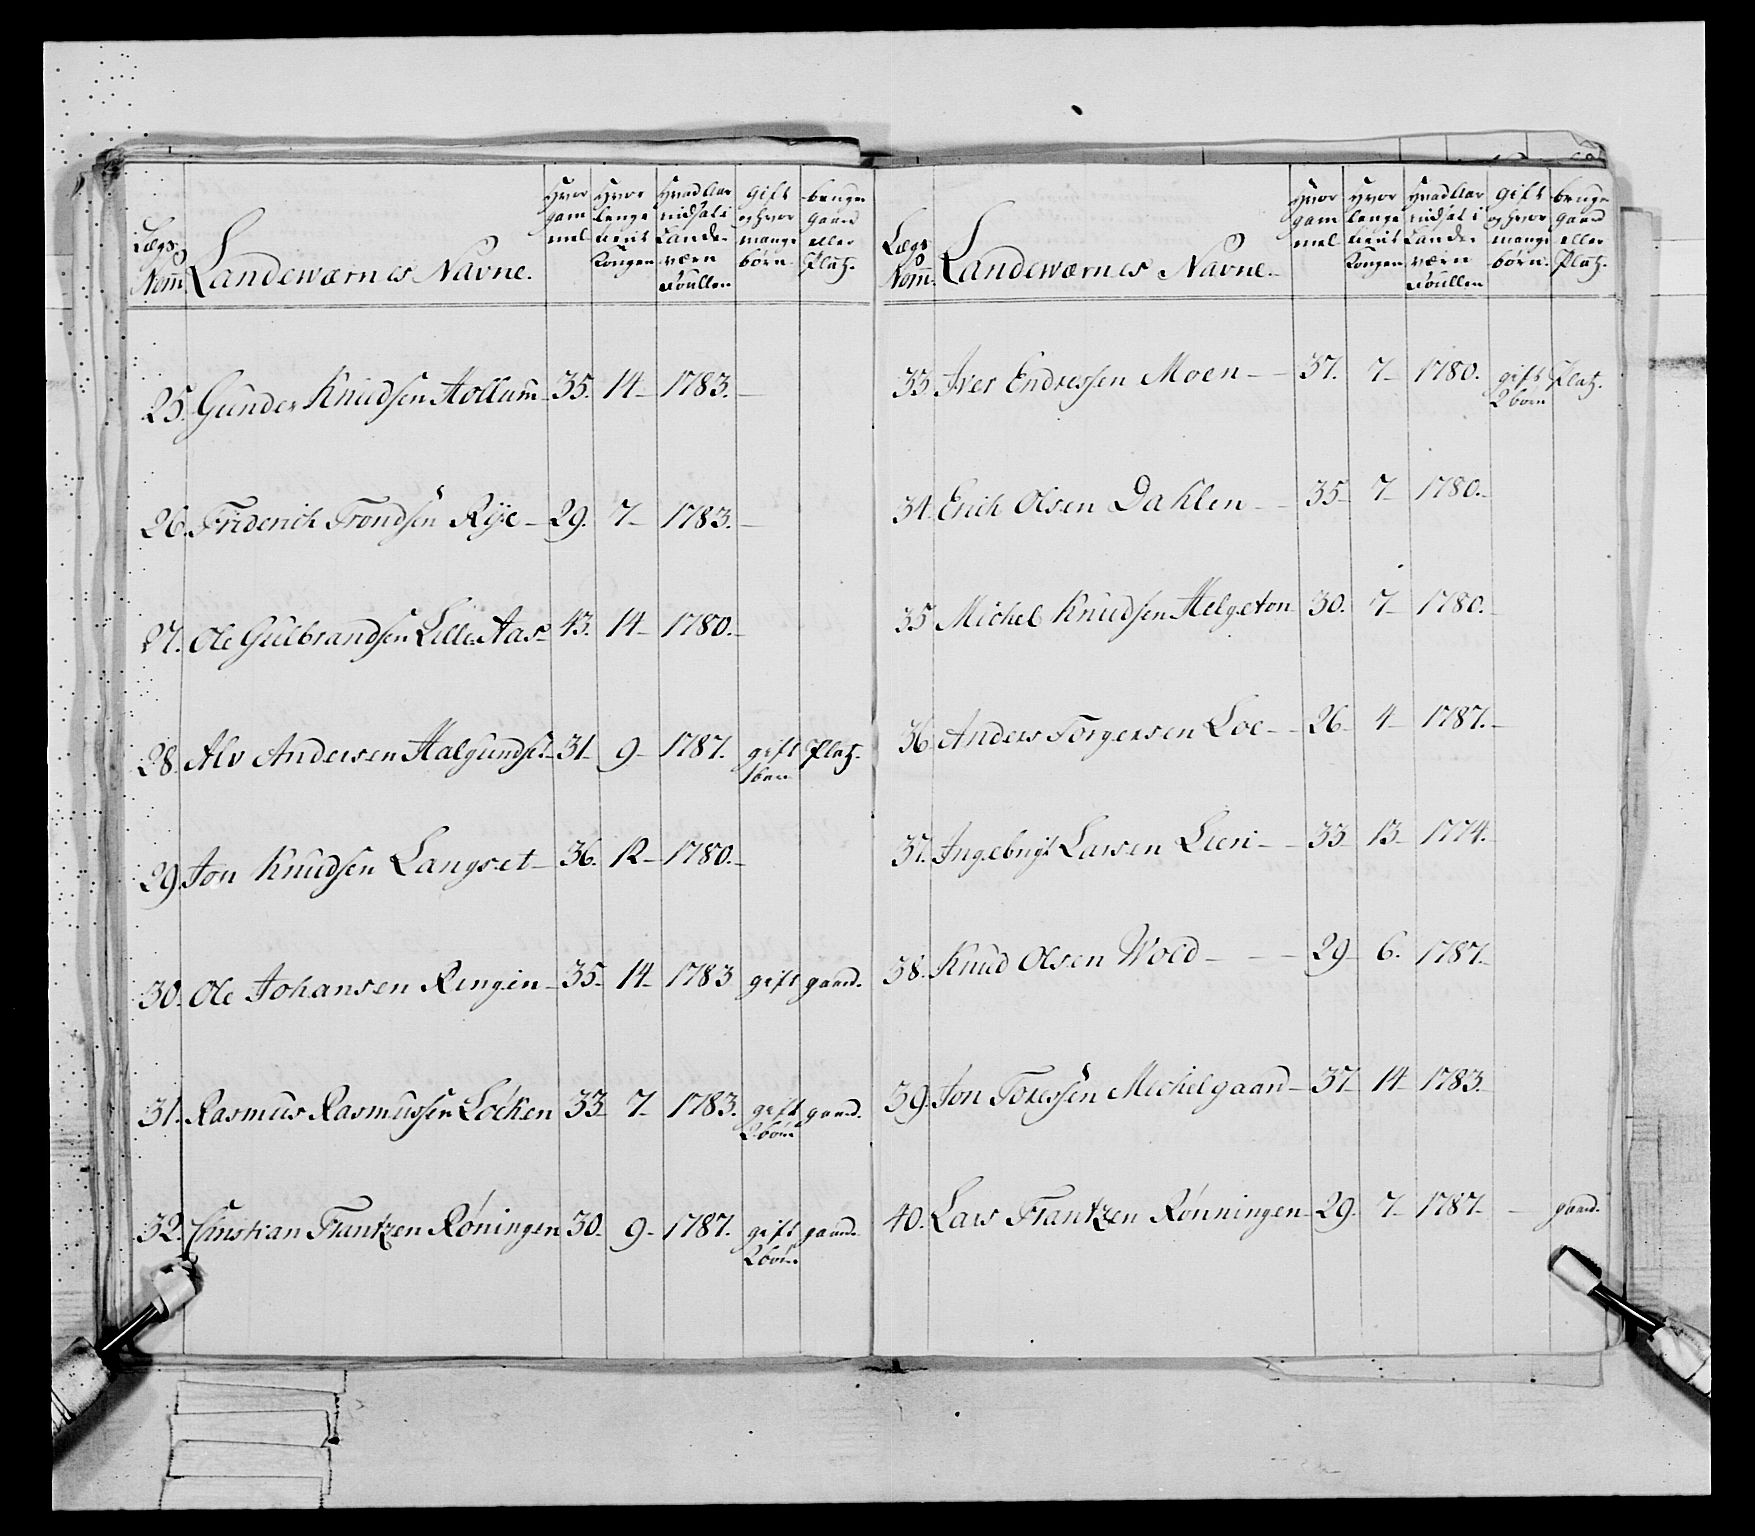 Lægs Nom̄. Landeværnes Navne. Hvor gam mel Hvor lenge tient Kongen Hvad Aar indsat i Lande- værn Roullen gift og hvor mange börn. bruger gaard eller Platz.
25. Gunder Knudsen Hollum 35. 14 1783.
26. Friderich Trondsen Rye 29. 7 1783.
27. Ole Gulbrandsen Lille Aas 43. 14 1780.
28. Alv Andersen 31 9 1787. gift Platz.
29 Jon Knudsen Langset 36. 12 1780.
30. Ole Johansen Ringen 35. 14 1783 gift gaard.
31. Rasmus Rasmussen Löcken 33 7 1783. gift gaard.
2 börn
32. Christian Frantzen Røningen 30. 9 1787. gift gaard.
2 börn
Lægs Nom̄. Landeværnes Navne. Hvor gam mel Hvor lenge tient Kongen Hvad Aar indsat i Lande- værn Roullen gift og hvor mange börn. bruger gaard eller Platz.
33. Iver Endressen Moen 37. 7 1780. gift Platz.
2 börn
34. Erich Olsen Dahlen 35 7 1780.
35 Michel Knudsen Helgeton 30. 7 1780.
36. Anders Torgersen Loe 26 4 1787.
37. Ingebrigt Larsen Lien 33 13 1774.
38. Knud Olsen Wold 29 6. 1787.
39. Jon Toressen Mechelgaard 37 14 1783.
40. Lars Frantzen Rønningen 29. 7 1787 gaard.